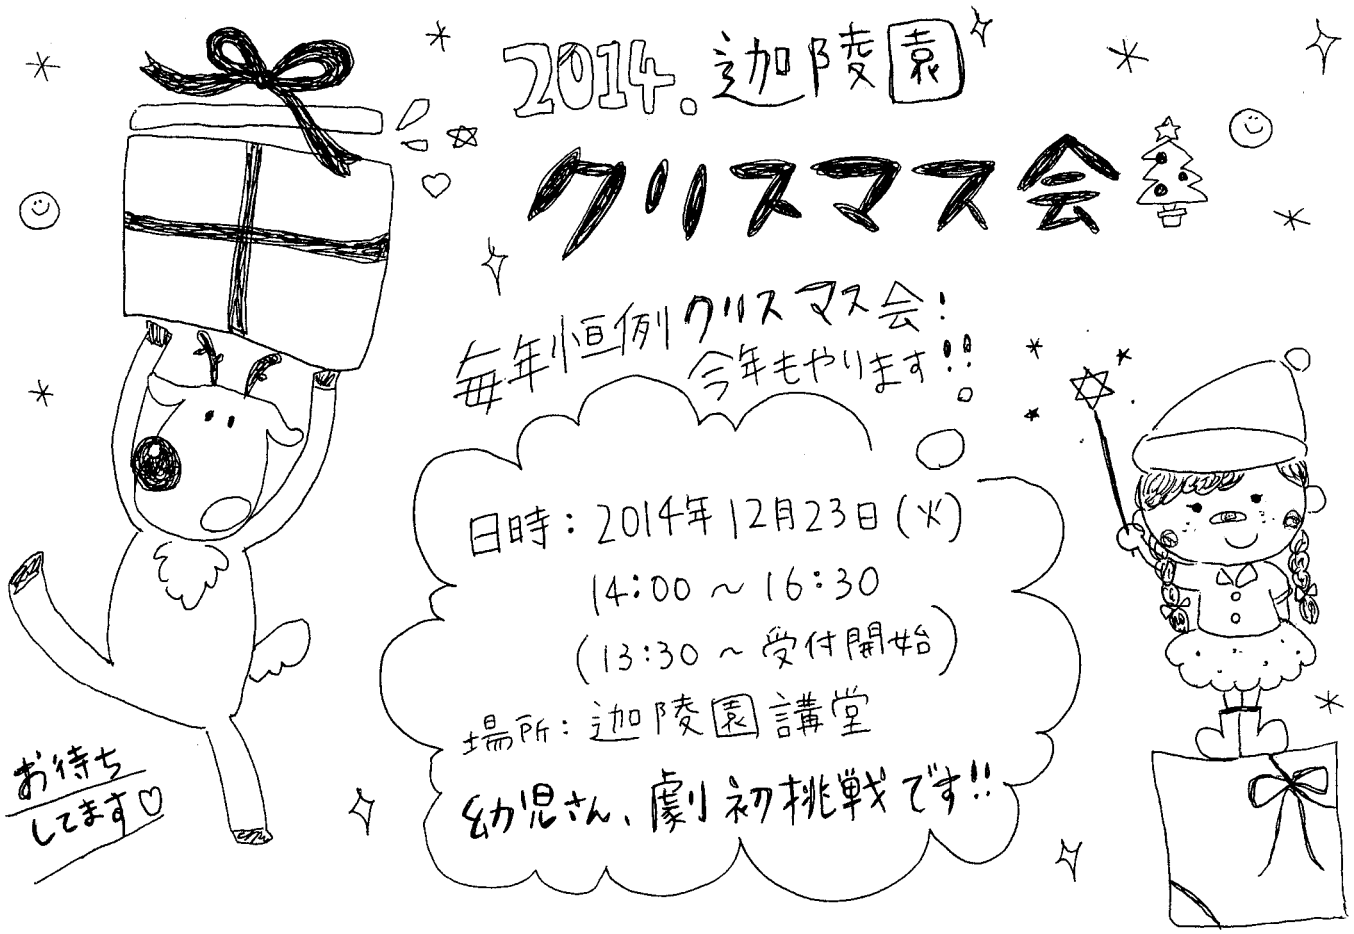 2014.迦陵園
クリスマス会
毎年恒例クリスマス会!
今年もやります!!
日時:2014年12月23日(火)
14:00~16:30
(13:30~受付開始)
場所:迦陵園講堂
幼児さん、劇初挑戦です!!
お待ち
してます♡